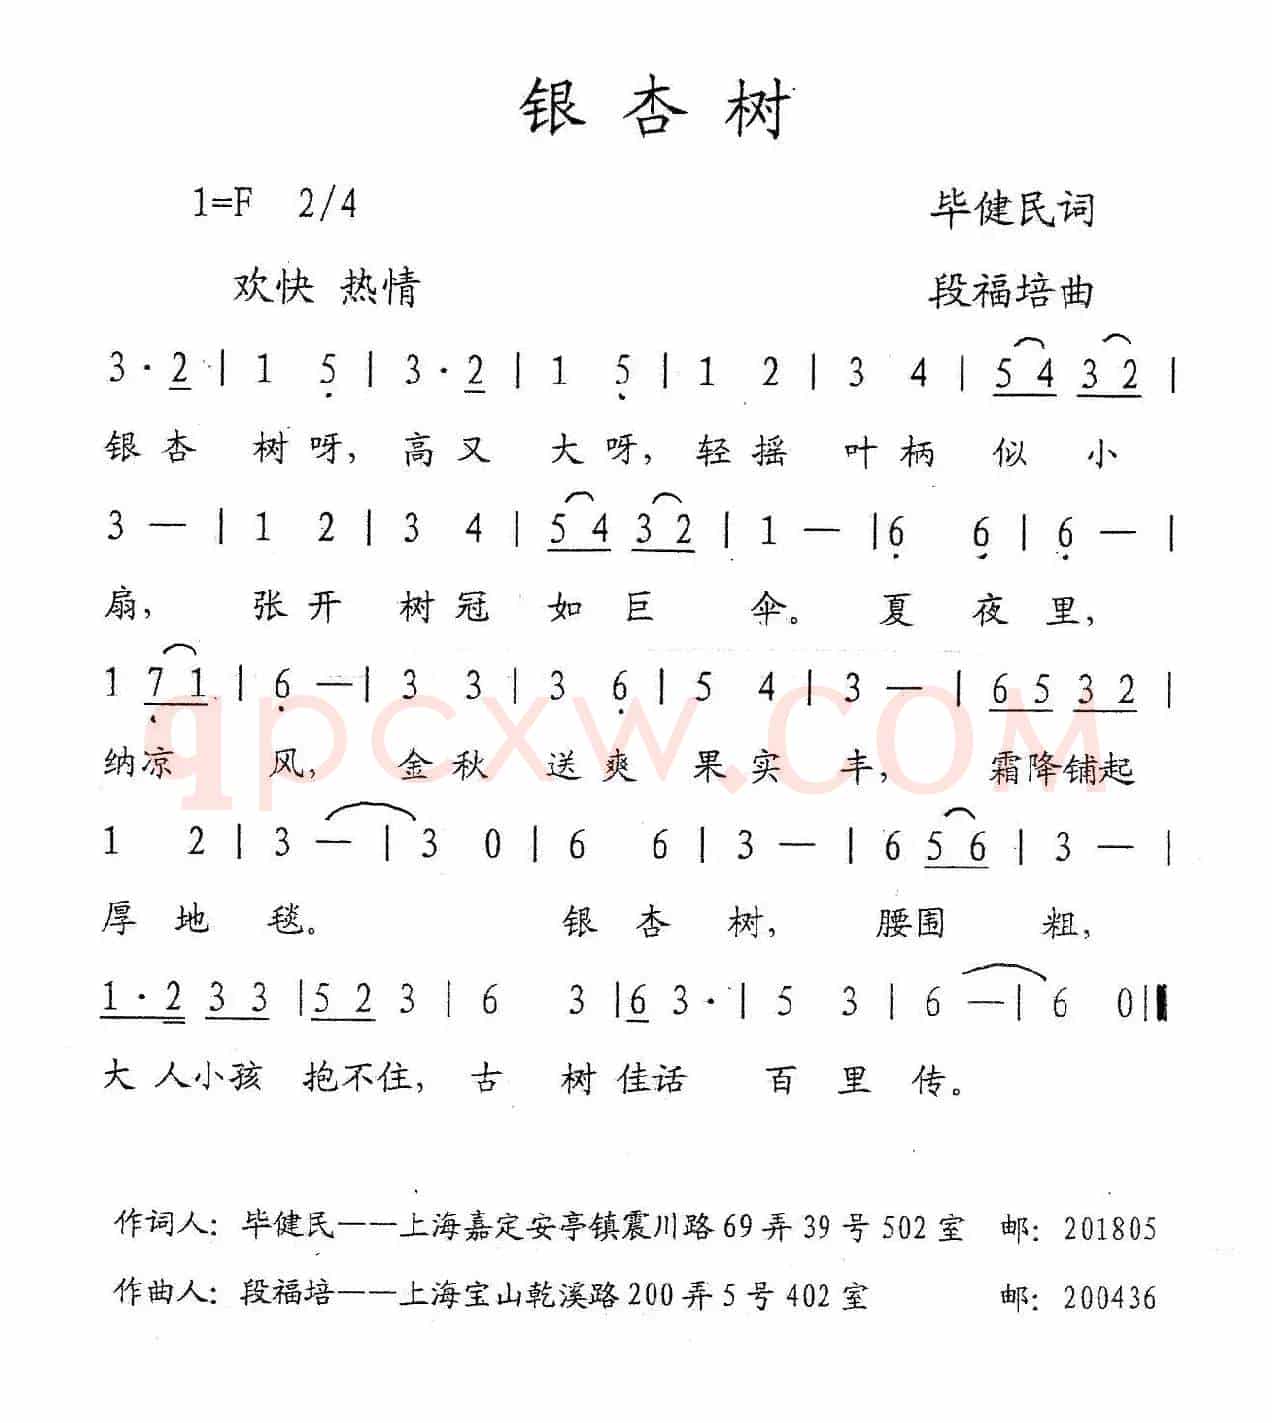 银杏树
1=F 2/4 毕健民词
欢快 热情 段福培曲
3·2 | 1 5 | 3·2 | 1 5 | 1 2 | 3 4 | 5 4 3 2 |
银杏 树呀, 高又 大呀, 轻摇 叶柄 似 小
3 — | 1 2 | 3 4 | 5 4 3 2 | 1 — | 6 6 | 6 — |
扇, 张开 树冠 如巨 伞。 夏 夜 里,
1 7 1 | 6 — | 3 3 | 3 6 | 5 4 | 3 — | 6 5 3 2 |
纳凉 风, 金秋 送爽 果实 丰, 霜降铺起
qpcxw.COM
1 2 | 3 — | 3 0 | 6 6 | 3 — | 6 5 6 | 3 — |
厚 地 毯。 银 杏 树, 腰围 粗,
1·2 3 3 | 5 2 3 | 6 3 | 6 3· | 5 3 | 6 — | 6 0 ‖
大 人小孩 抱不住, 古 树 佳话 百 里 传。
作词人: 毕健民——上海嘉定安亭镇震川路 69 弄 39 号 502 室 邮: 201805
作曲人: 段福培——上海宝山乾溪路 200 弄 5 号 402 室 邮: 200436